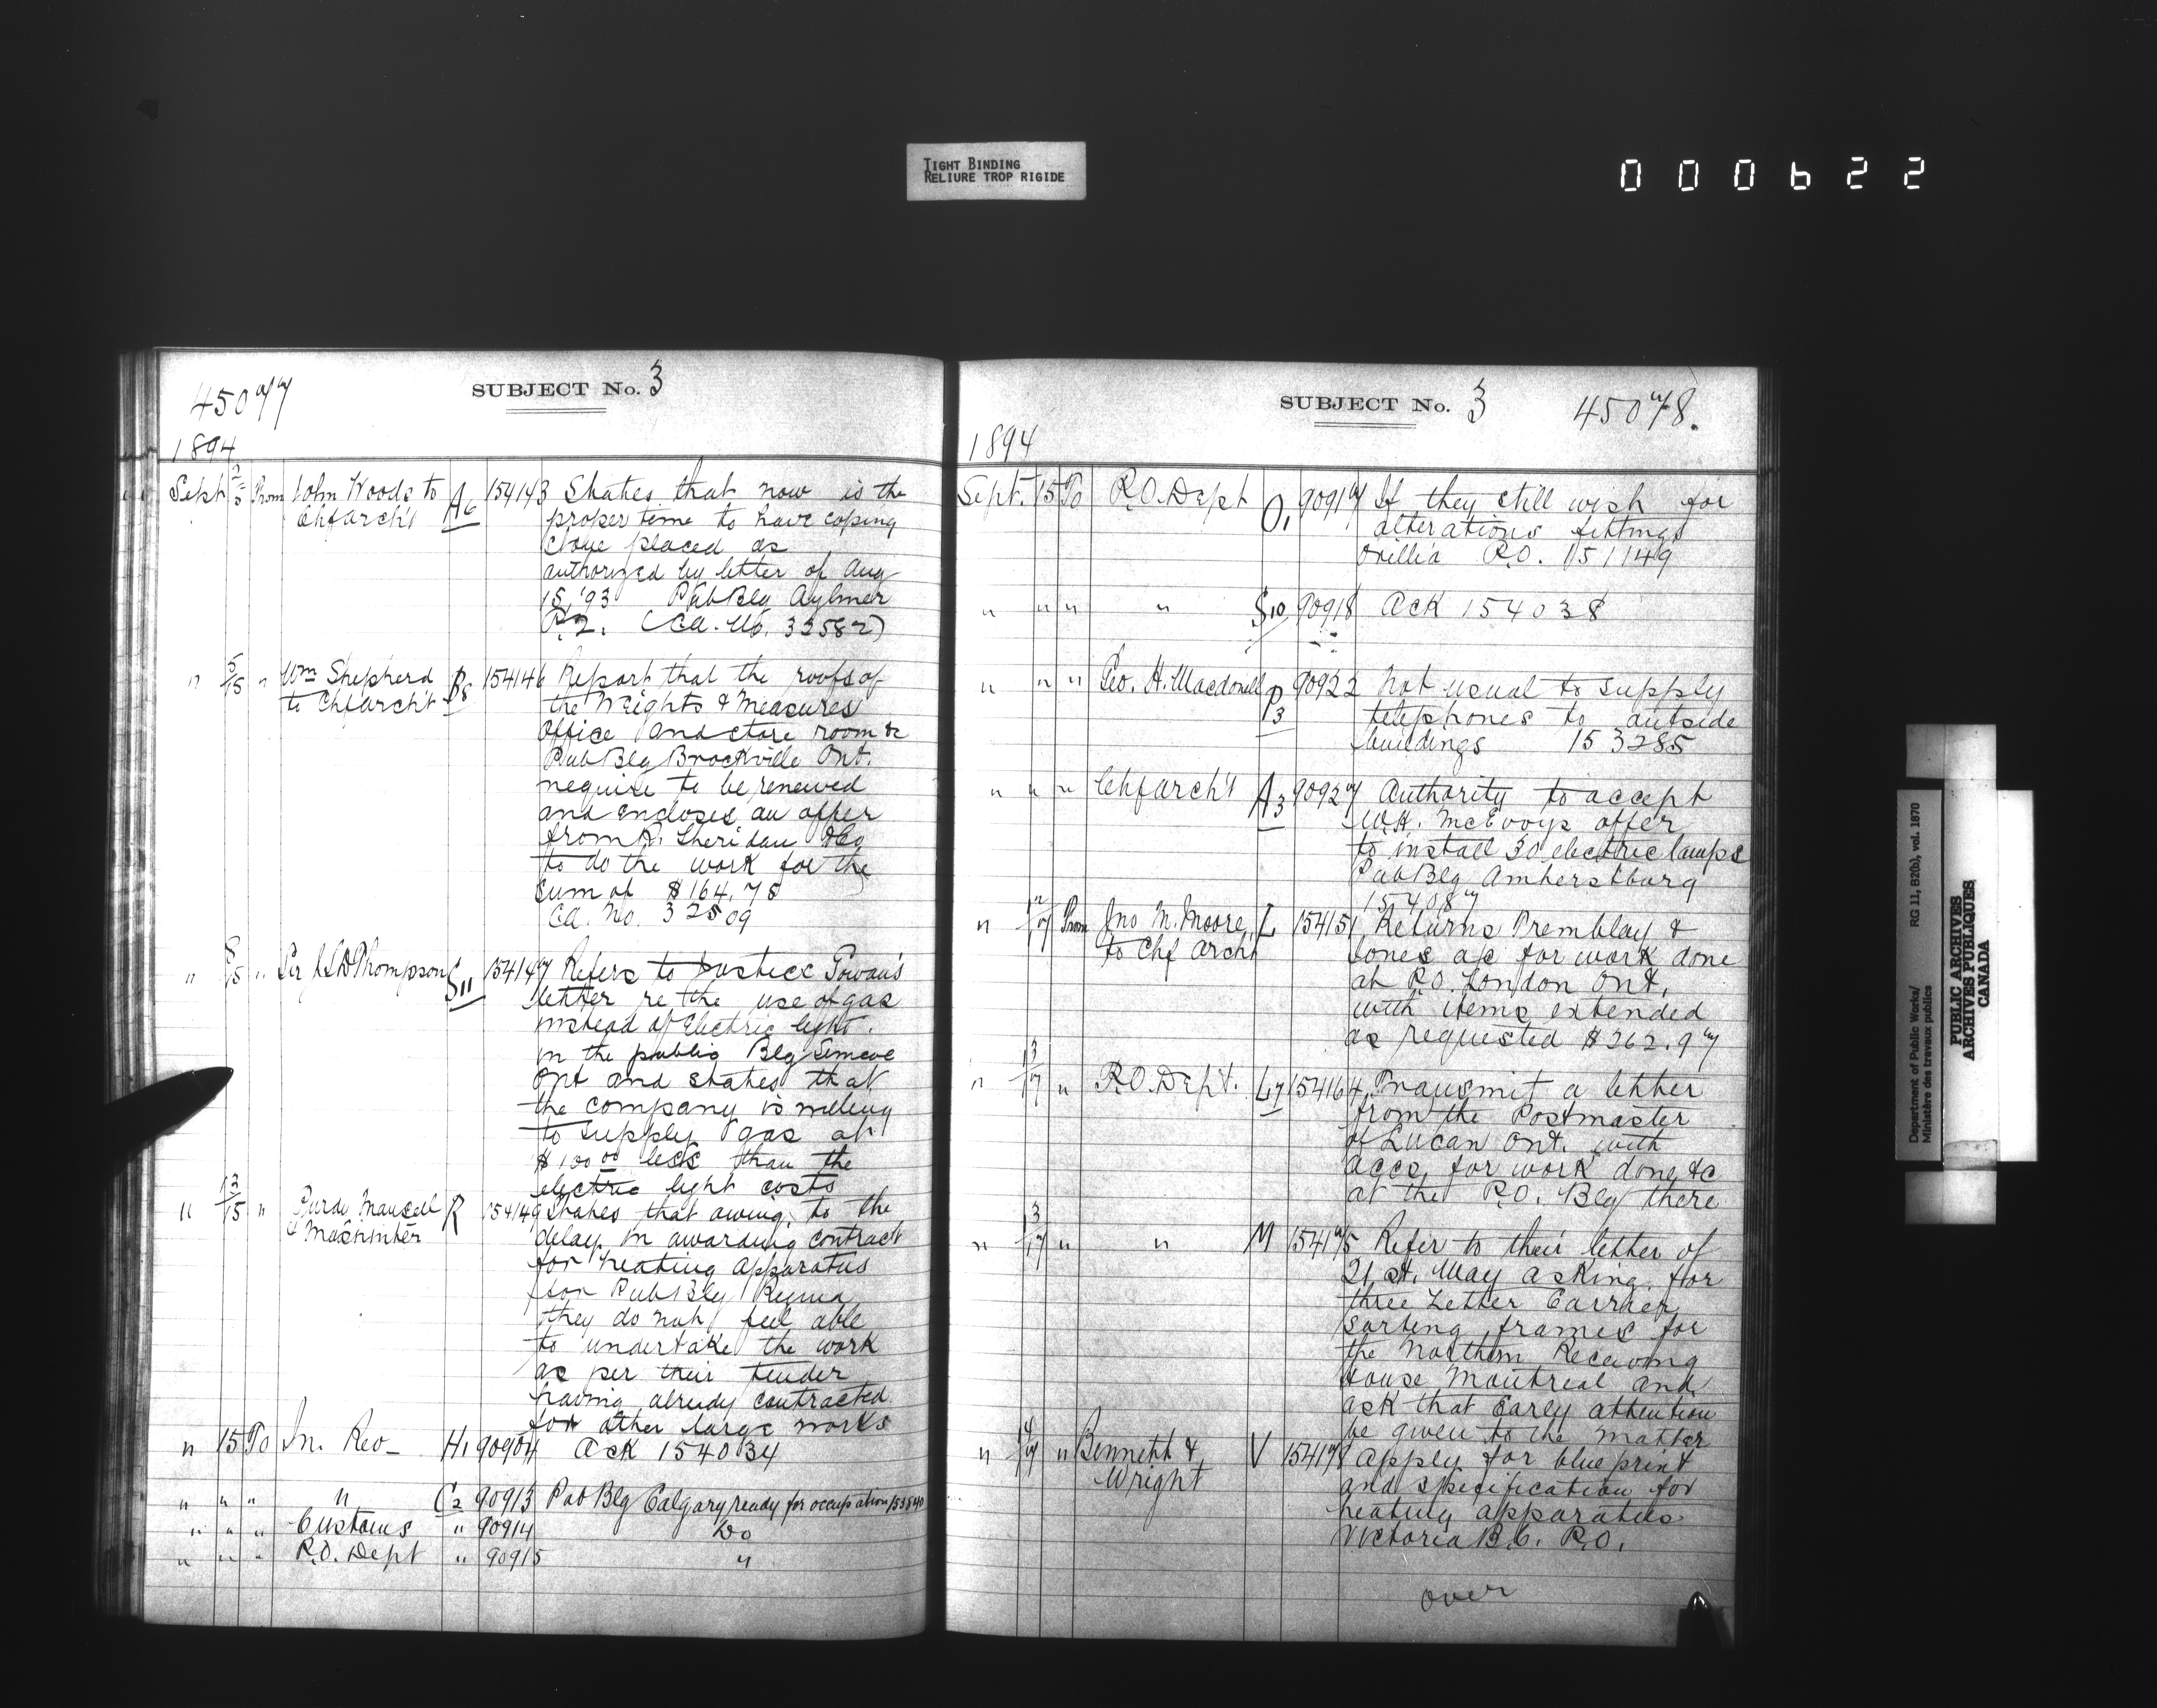 TIGHT BINDING
RELIURE TROP RIGIDE
000622
45077
SUBJECT No. 3
1894
Sept From John Woods to A6 154143 States that now is the
Chf arch't proper time to have coping
stone placed as
authorized by letter of Aug
15, '93 Pub Blg Aylmer
P.Q. (Ca. No. 33582)
" 5/15 " Wm Shepherd B8 154146 Report that the roofs of
to Chf arch't the Weights & Measures
Office and store room &c
Pub Blg Brockville Ont.
require to be renewed
and encloses an offer
from R. Sheridan
to do the work for the
sum of $164.75
Ca. No. 32509
" 8/15 " Sir J S D Thompson S11 154147 Refers to Justice Gowan's
letter re the use of gas
instead of Electric light
in the public Blg Simcoe
Ont and states that
the company is willing
to supply gas at
$100 00 less than the
electric light costs
" 13/15 " Purdy Mansell R 154149 States that owing to the
& Mashinter delay in awarding contract
for heating apparatus
for Pub Blg Regina
they do not feel able
to undertake the work
as per their tender
having already contracted
for other large works
" 15 To In. Rev_ H1 90904 Ack 154034
" " " " C2 90913 Pub Blg Calgary ready for occupation 153840
" " " Customs " 90914 Do
" " " P.O. Dept " 90915 "
SUBJECT No. 3 45078.
1894
Sept. 15 To P.O. Dept O1 90917 If they still wish for
alterations fittings
Orillia P.O. 151149
" " " " S10 90918 Ack 154038
" " " Geo. H. Macdonell P3 90922 Not usual to supply
telephones to outside
buildings 153285
" " " Chf arch't A3 90927 Authority to accept
W.H. McEvoys offer
to install 30 electric lamps
Pub Blg Amherstburg
154087
" 12/17 From Jno M. Moore, L 154151 Returns Tremblay &
to Chf Arch't Jones a/c for work done
at P.O. London Ont,
with items extended
as requested $262.97
" 13/17 " P.O. Dept. L7 154164 Transmit a letter
from the Postmaster
of Lucan Ont. with
accs, for work done &c
at the P.O. Blg there
" 13/17 " " M 154175 Refer to their letter of
21st. May asking for
three Letter Carrier
sorting frames for
the Northern Receiving
House Montreal and
ask that Early attention
be given to the matter
" 14/17 " Bennett & V 154178 Apply for blue print
Wright and specification for
heating apparatus
Victoria B.C. P.O.
over
Department of Public Works/ RG 11, B2(b), vol. 1870
Ministère des travaux publics
PUBLIC ARCHIVES
ARCHIVES PUBLIQUES
CANADA